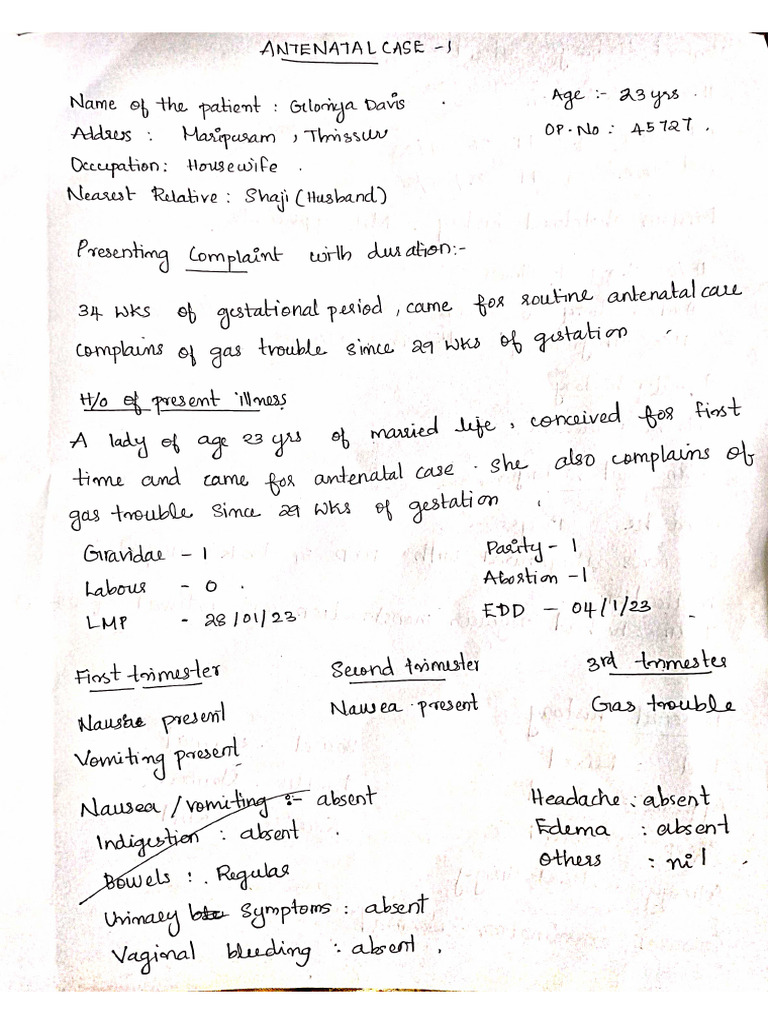 ANTENATAL CASE - 1
Name of the patient : Gloriya Davis . Age :- 23 yrs .
Address : Maripuram , Thrissur OP. No : 45727 .
Occupation : Housewife .
Nearest Relative : Shaji (Husband)
Presenting Complaint with duration:-
34 wks of gestational period, came for routine antenatal care
complains of gas trouble since 29 wks of gestation .
H/o of present illness
A lady of age 23 yrs of married life, conceived for first
time and came for antenatal case . She also complains of
gas trouble since 29 wks of gestation .
Gravidae - 1 Parity - 1
Labour - 0 . Abortion - 1
LMP - 28/01/23 EDD - 04/1/23
First trimester Second trimester 3rd trimester
Nausea present Nausea present Gas trouble
Vomiting present
Nausea / vomiting :- absent Headache : absent
Indigestion : absent . Edema : absent
Bowels : . Regular Others : nil .
Urinary Symptoms : absent
Vaginal bleeding : absent .